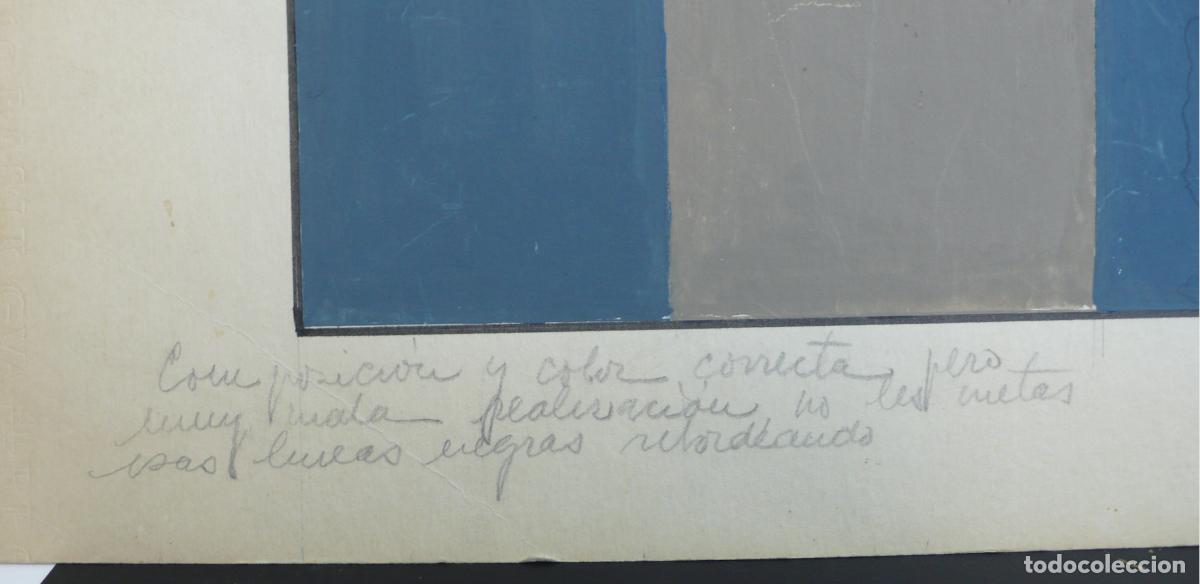 Composición y color correcta, pero
muy mala realización no les metas
esas lineas negras rebordeando
todocoleccion